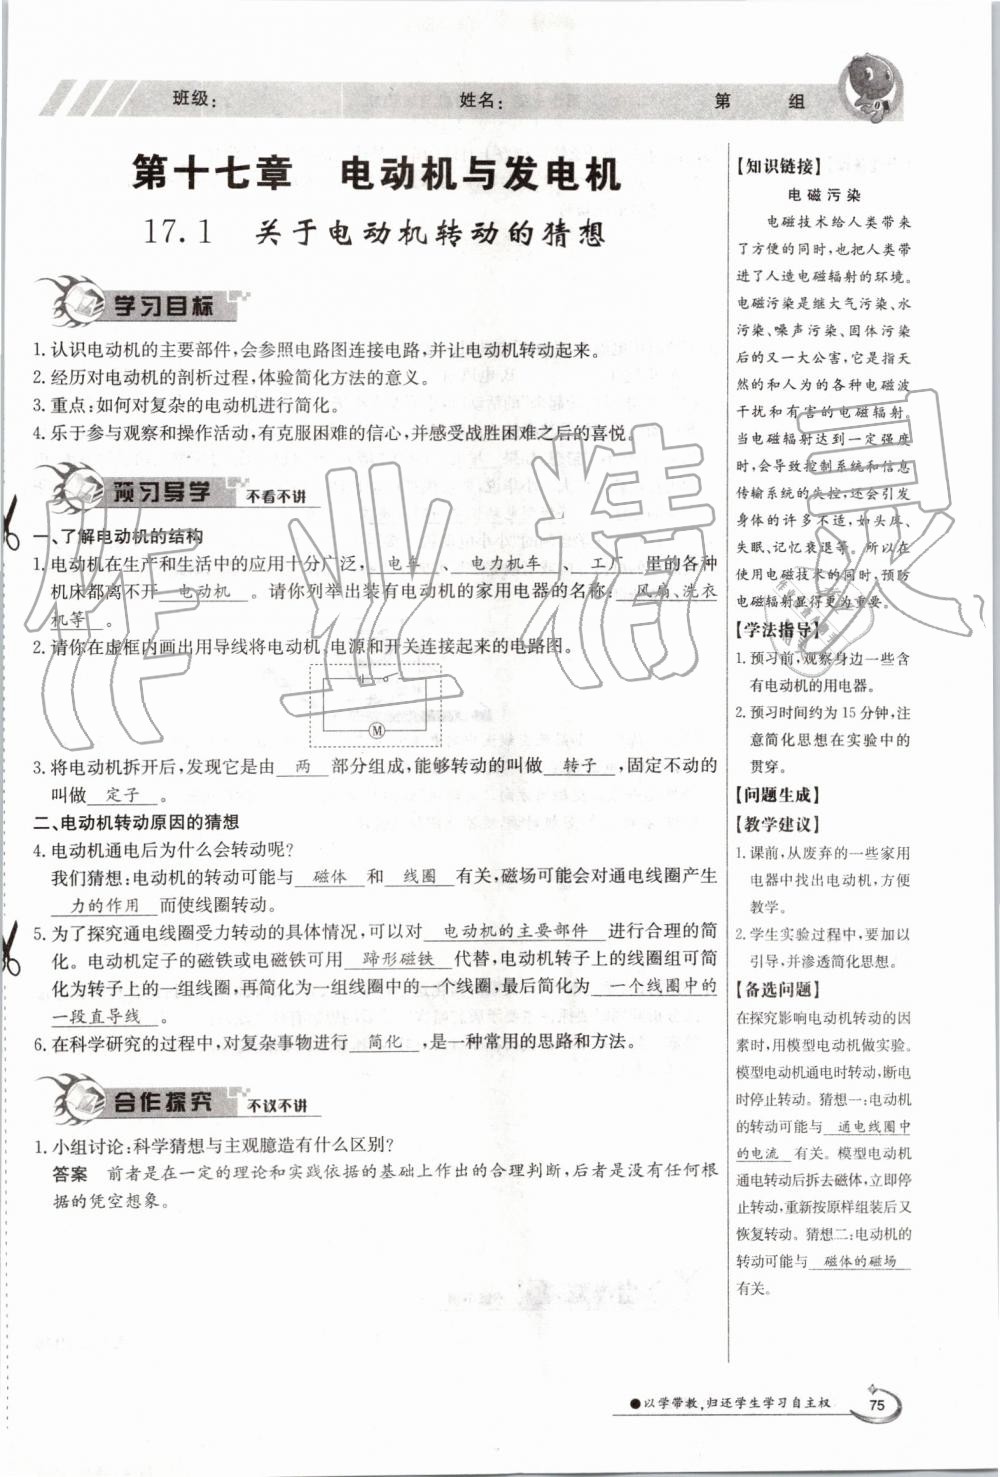 班级:
姓名:
第 组
第十七章 电动机与发电机
17.1 关于电动机转动的猜想
学习目标
1. 认识电动机的主要部件,会参照电路图连接电路,并让电动机转动起来。
2. 经历对电动机的剖析过程,体验简化方法的意义。
3. 重点:如何对复杂的电动机进行简化。
4. 乐于参与观察和操作活动,有克服困难的信心,并感受战胜困难之后的喜悦。
预习导学 不看不讲
一、了解电动机的结构
1. 电动机在生产和生活中的应用十分广泛, 电车 、 电力机车 、 工厂 里的各种
机床都离不开 电动机 。请你列举出装有电动机的家用电器的名称: 风扇、洗衣
机等 。
2. 请你在虚框内画出用导线将电动机、电源和开关连接起来的电路图。
M
3. 将电动机拆开后,发现它是由 两 部分组成,能够转动的叫做 转子 ,固定不动的
叫做 定子 。
二、电动机转动原因的猜想
4. 电动机通电后为什么会转动呢?
我们猜想:电动机的转动可能与 磁体 和 线圈 有关,磁场可能会对通电线圈产生
力的作用 而使线圈转动。
5. 为了探究通电线圈受力转动的具体情况,可以对 电动机的主要部件 进行合理的简
化。电动机定子的磁铁或电磁铁可用 蹄形磁铁 代替,电动机转子上的线圈组可简
化为转子上的一组线圈,再简化为一组线圈中的一个线圈,最后简化为 一个线圈中的
一段直导线 。
6. 在科学研究的过程中,对复杂事物进行 简化 ,是一种常用的思路和方法。
合作探究 不议不讲
1. 小组讨论:科学猜想与主观臆造有什么区别?
答案 前者是在一定的理论和实践依据的基础上作出的合理判断,后者是没有任何根
据的凭空想象。
【知识链接】
电磁污染
电磁技术给人类带来
了方便的同时,也把人类带
进了人造电磁辐射的环境。
电磁污染是继大气污染、水
污染、噪声污染、固体污染后
的又一大公害,它是指天
然的和人为的各种电磁波
干扰和有害的电磁辐射。
当电磁辐射达到一定强度
时,会导致控制系统和信息
传输系统的失控,还会引发
身体的许多不适,如头疼、
失眠、记忆衰退等。所以在
使用电磁技术的同时,预防
电磁辐射显得更为重要。
【学法指导】
1. 预习前,观察身边一些含
有电动机的用电器。
2. 预习时间约为15分钟,注
意简化思想在实验中的
贯穿。
【问题生成】
【教学建议】
1. 课前,从废弃的一些家用
电器中找出电动机,方便
教学。
2. 学生实验过程中,要加以
引导,并渗透简化思想。
【备选问题】
在探究影响电动机转动的因
素时,用模型电动机做实验。
模型电动机通电时转动,断电
时停止转动。猜想一:电动机
的转动可能与 通电线圈中
的电流 有关。模型电动机
通电转动后拆去磁体,立即停
止转动,重新按原样组装后又
恢复转动。猜想二:电动机的
转动可能与 磁体的磁场
有关。
●以学带教,归还学生学习自主权
75
作业精灵